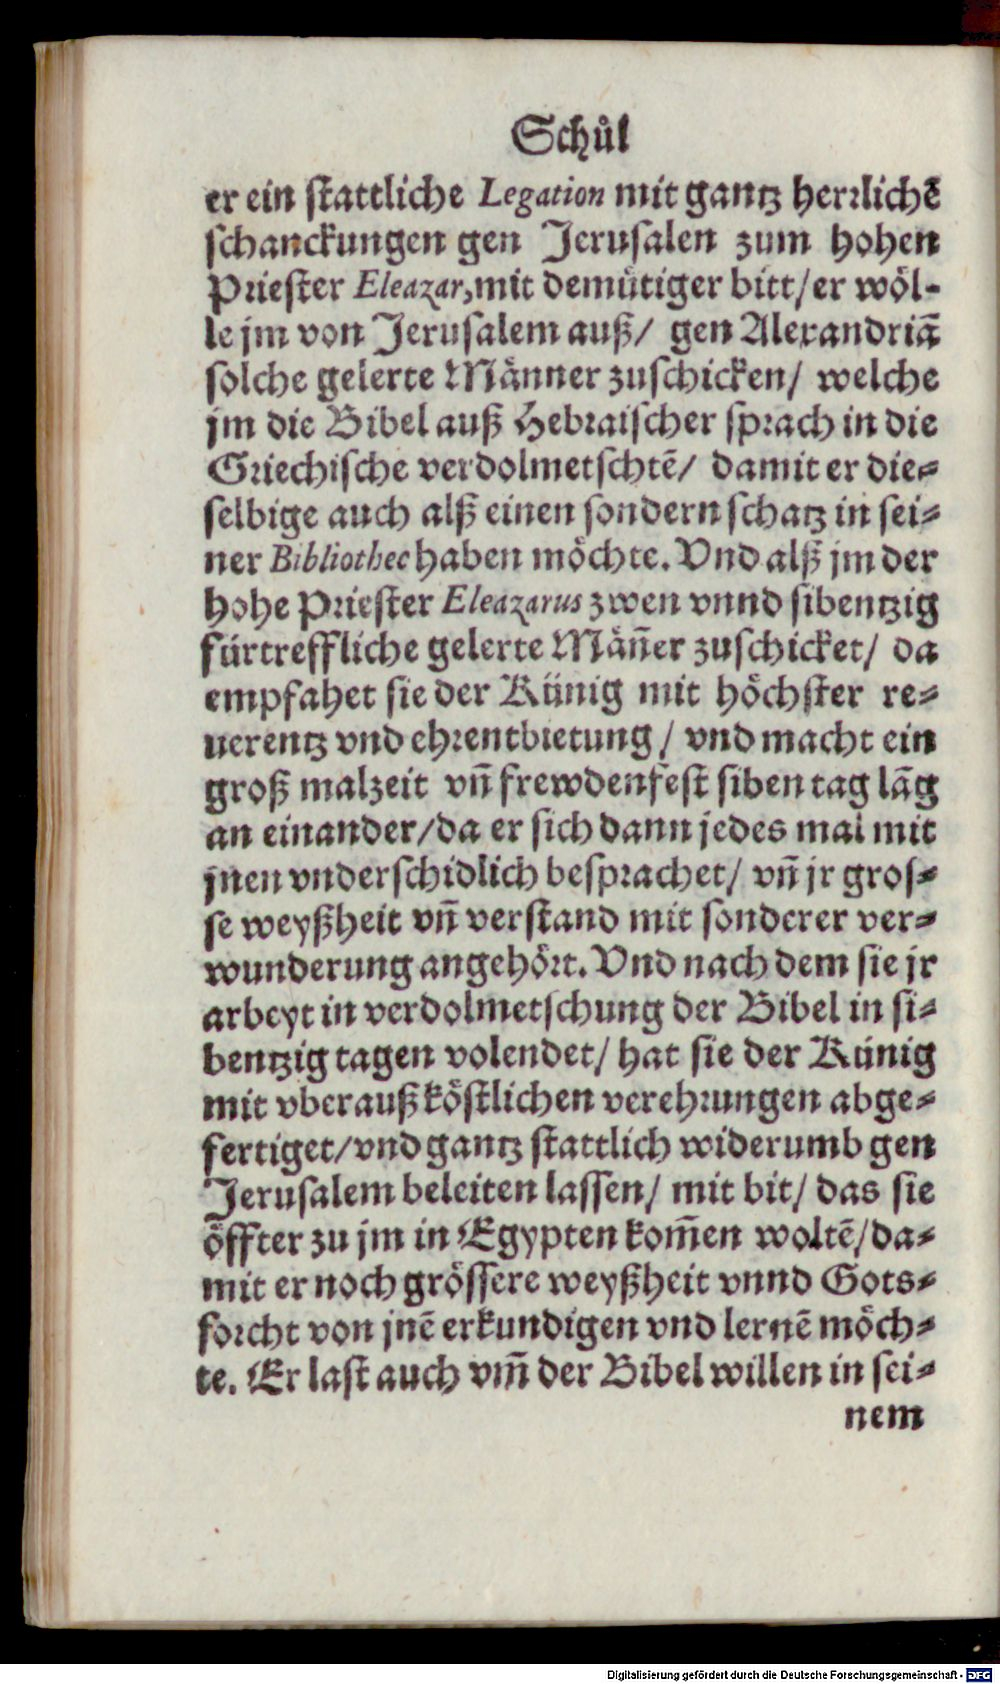 Schůl
er ein stattliche Legation mit gantz herrlichē
schanckungen gen Jerusalen zum hohen
Priester Eleazar, mit demütiger bitt/ er wöl-
le jm von Jerusalem auß/ gen Alexandriā
solche gelerte Männer zuschicken/ welche
jm die Bibel auß Hebraischer sprach in die
Griechische verdolmetschtē/ damit er die-
selbige auch alß einen sondern schatz in sei-
ner Bibliothec haben möchte. Vnd alß jm der
hohe Priester Eleazarus zwen vnnd sibentzig
fürtreffliche gelerte Mäñer zuschicket/ da
empfahet sie der Künig mit höchster re-
uerentz vnd ehrentbietung/ vnd macht ein
groß malzeit vñ frewdenfest siben tag lāg
an einander/ da er sich dann jedes mal mit
jnen vnderschidlich besprachet/ vñ jr gros-
se weyßheit vñ verstand mit sonderer ver-
wunderung angehört. Vnd nach dem sie jr
arbeyt in verdolmetschung der Bibel in si-
bentzig tagen volendet/ hat sie der Künig
mit vberauß köstlichen verehrungen abge-
fertiget/ vnd gantz stattlich widerumb gen
Jerusalem beleiten lassen/ mit bit/ das sie
öffter zu jm in Egypten kom̄en woltē/ da-
mit er noch grössere weyßheit vnnd Gots-
forcht von jnē erkundigen vnd lernē möch-
te. Er last auch vm̄ der Bibel willen in sei-
nem
Digitalisierung gefördert durch die Deutsche Forschungsgemeinschaft - DFG